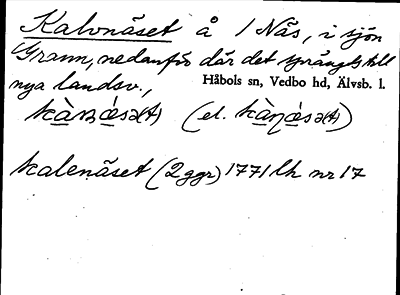 Kalvnäset å 1 Näs, i sjön
Grann, nedanför där det sprängts till
nya landsv.,
Håbols sn, Vedbo hd, Älvsb. l.
(el.
Kalenäset (2 ggr) 1771 lh nr 17